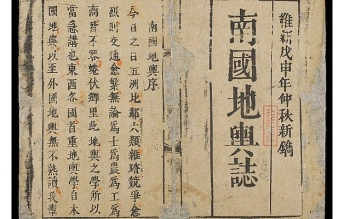 維新戊申年仲秋新鐫
南國地輿誌
南國地輿序
今日之日五洲比鄰六類雜競爭愈
烈則交通愈繁無論為士為農為工為
商皆不容蜷伏鄉里此地輿之學所以
當急講也東西各國首重地輿學自本
國地輿以至外國地輿無不熟讀我輩